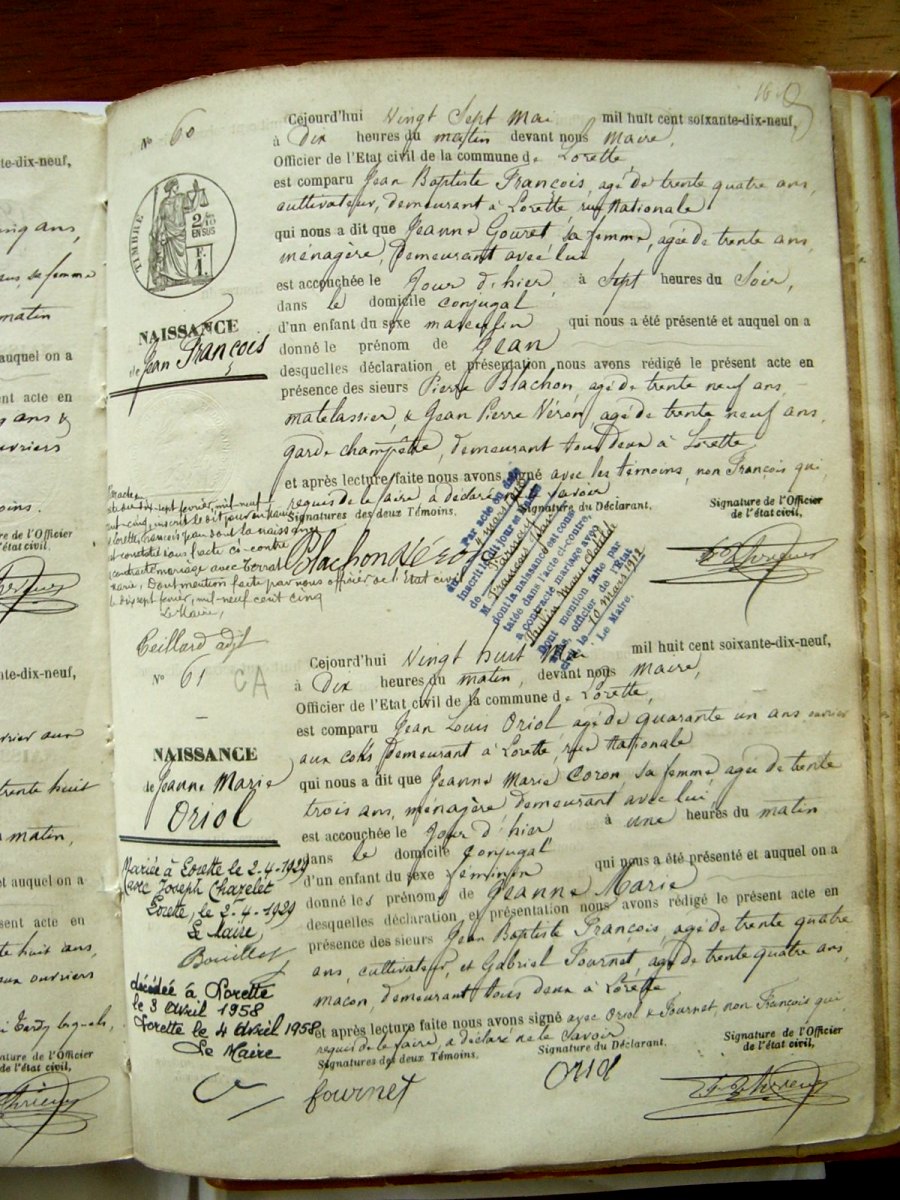 N° 60
Cejourd'hui Vingt Sept Mai mil huit cent soixante-dix-neuf,
à Dix heures du matin devant nous Maire
Officier de l'Etat civil de la commune de Lorette
est comparu Jean Baptiste François, agé de trente quatre ans,
cultivateur, demeurant à Lorette rue Nationale
qui nous a dit que Jeanne Gouret, sa femme, agée de trente ans,
ménagère, demeurant avec lui
est accouchée le Jour d'hier, à Sept heures du Soir,
dans le domicile conjugal
d'un enfant du sexe masculin qui nous a été présenté et auquel on a
donné le prénom de Jean
desquelles déclaration et présentation nous avons rédigé le présent acte en
présence des sieurs Pierre Blachon, agé de trente neuf ans
matelassier, & Jean Pierre Véron agé de trente neuf ans
garde champêtre, demeurant tous deux à Lorette
et après lecture faite nous avons signé avec les témoins, non François qui
requis de le faire a déclaré ne le savoir
Signatures des deux Témoins. Signature du Déclarant. Signature de l'Officier
de l'état civil,
Blachon Véron
TIMBRE
2
EN SUS
F.
1.
NAISSANCE
de Jean François
sept février, mil neuf
cent cinq, inscrit le dit jour
Lorette, François Jean dont la naissance
est constatée sous l'acte ci-contre
contracté mariage avec
Marie, Dont mention faite par nous officier de l'Etat civil
le dix sept février, mil neuf cent cinq
Le Maire,
Teillard adjt
Par acte en date
du 4 mars 1912
inscrit le dit jour
de
M. François Jean
dont la naissance est cons-
tatée dans l'acte ci-contre,
a contracté mariage avec
Paulin Marie
Dont mention faite par
nous, officier de l'Etat
civil le 10 mars 1912
Le Maire.
N° 61 CA
Cejourd'hui Vingt huit Mai mil huit cent soixante-dix-neuf,
à Dix heures du matin, devant nous Maire,
Officier de l'Etat civil de la commune de Lorette,
est comparu Jean Louis Oriol agé de quarante un ans ouvrier
aux coks demeurant à Lorette, rue Nationale
qui nous a dit que Jeanne Marie Coron, sa femme agée de trente
trois ans, ménagère demeurant avec lui,
est accouchée le Jour d'hier à une heures du matin
dans le domicile conjugal
d'un enfant du sexe féminin qui nous a été présenté et auquel on a
donné les prénoms de Jeanne Marie
desquelles déclaration et présentation nous avons rédigé le présent acte en
présence des sieurs Jean Baptiste François, agé de trente quatre
ans, cultivateur, et Gabriel Fournet, agé de trente quatre ans,
maçon, demeurant tous deux à Lorette
et après lecture faite nous avons signé avec Oriol & Fournet, non François qui
requis de le faire, a déclaré ne le savoir
Signatures des deux Témoins. Signature du Déclarant. Signature de l'Officier
de l'état civil,
fournet Oriol
NAISSANCE
de Jeanne Marie
Oriol
Mariée à Lorette le 2-4-1929
avec Joseph Charelet
Lorette, le 2-4-1929
Le Maire,
Bouillet
décédée à Lorette
le 3 Avril 1958
Lorette le 4 Avril 1958
Le Maire